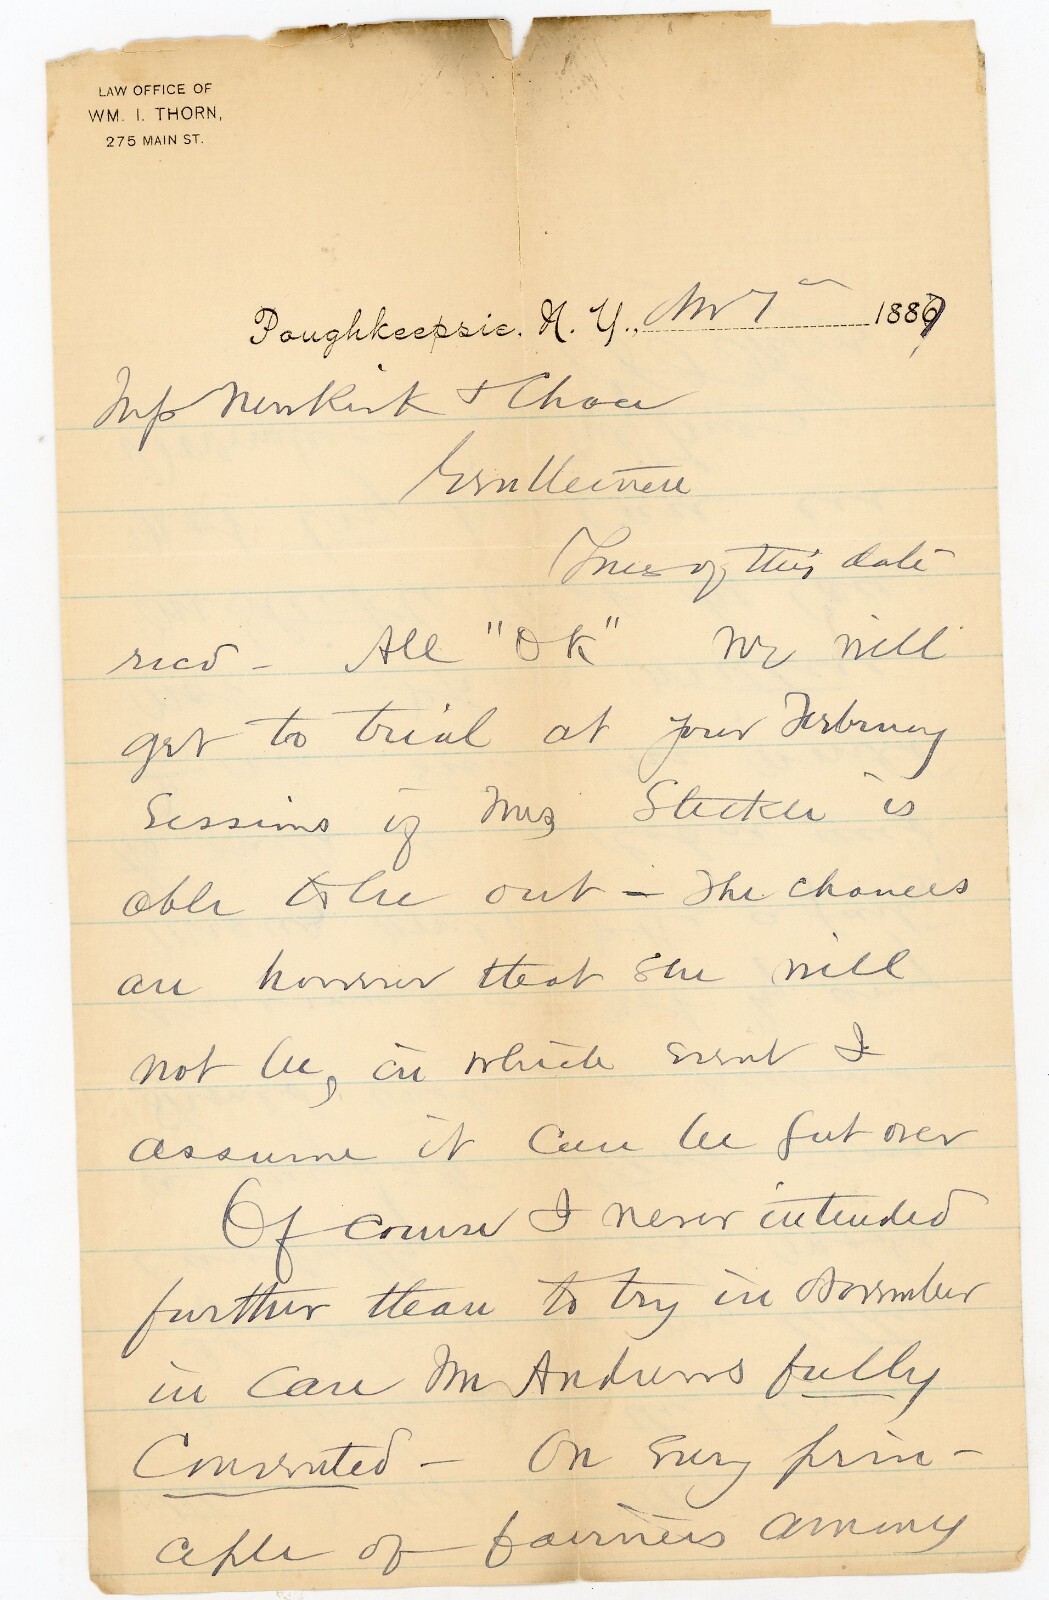 LAW OFFICE OF
WM. I. THORN,
275 MAIN ST.
Poughkeepsie, N. Y., Nov 7 1887
Newkirk & Chace
Gentlemen
Yours of this date
recd - All "OK" We will
get to trial at your February
Sessions if Mrs is
able to be out - The chances
are however that she will
not be, in which event I
assume it can be put over
Of course I never intended
further than to try in November
in case Mr Andrews fully
Consented - On every prin-
ciple of fairness among